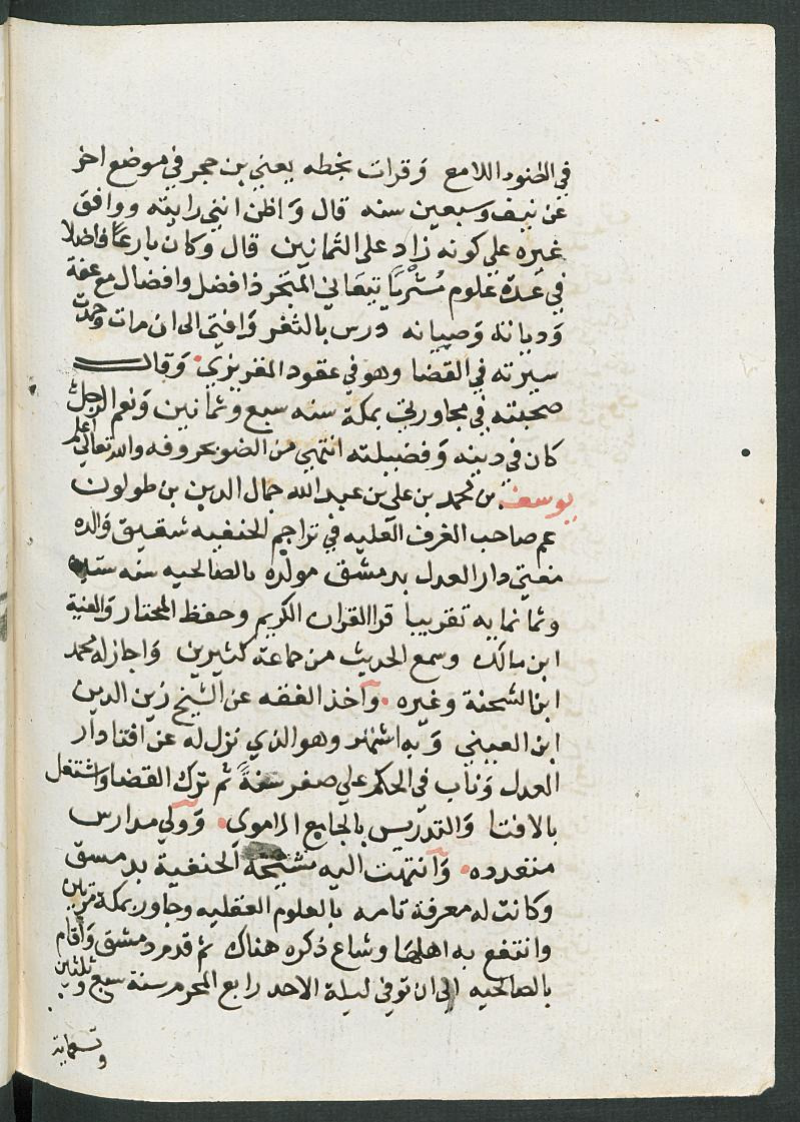 في الضود اللامع وقرات بخطه يعني بن حجر في موضع اخر
عن نيف وسبعين سنه قال واظن انني رايته ووافق
غيره علي كونه زاد علي الثمانين قال وكان بارعًا فاضلا
في عدة علوم مُثريًا يتعاني المتجر ذا فضل وافضال مع عفة
وديانة وصيانه درس بالثغر وافتي الي ان مات وحمدت
سيرته في القضا وهو في عقود المقريزي وقال
صحبته في مجاورتي بمكة سنه سبع وثمانين ونعم الرجل
كان في دينه وفضيلته انتهي من الضو بحروفه والله تعالي اعلم
يوسف بن محمد بن علي بن عبد الله جمال الدين بن طولون
عم صاحب الغرف العليه في تراجم الحنفيه شقيق والده
مفتي دار العدل بدمشق مولده بالصالحيه سنه ستين
وثمانمايه تقريبا قرا القران الكريم وحفظ المختار والفية
ابن مالك وسمع الحديث من جماعة كثيرين واجاز له محمد
ابن الشحنة وغيره واخذ الفقه عن الشيخ زين الدين
ابن العيني وبه اشتهر وهو الذي نزل له عن افتا دار
العدل وناب في الحكم علي صغر سنة ثم ترك القضا واشتغل
بالافتا والتدريس بالجامع الاموي وولي مدارس
متعدده وانتهت اليه مشيخة الحنفية بدمشق
وكانت له معرفة تامه بالعلوم العقليه وجاور بمكة مرتين
وانتفع به اهلها وشاع ذكره هناك ثم قدم دمشق واقام
بالصالحيه الي ان توفي ليلة الاحد رابع المحرم سنة سبع وثلثين
وتسعماية